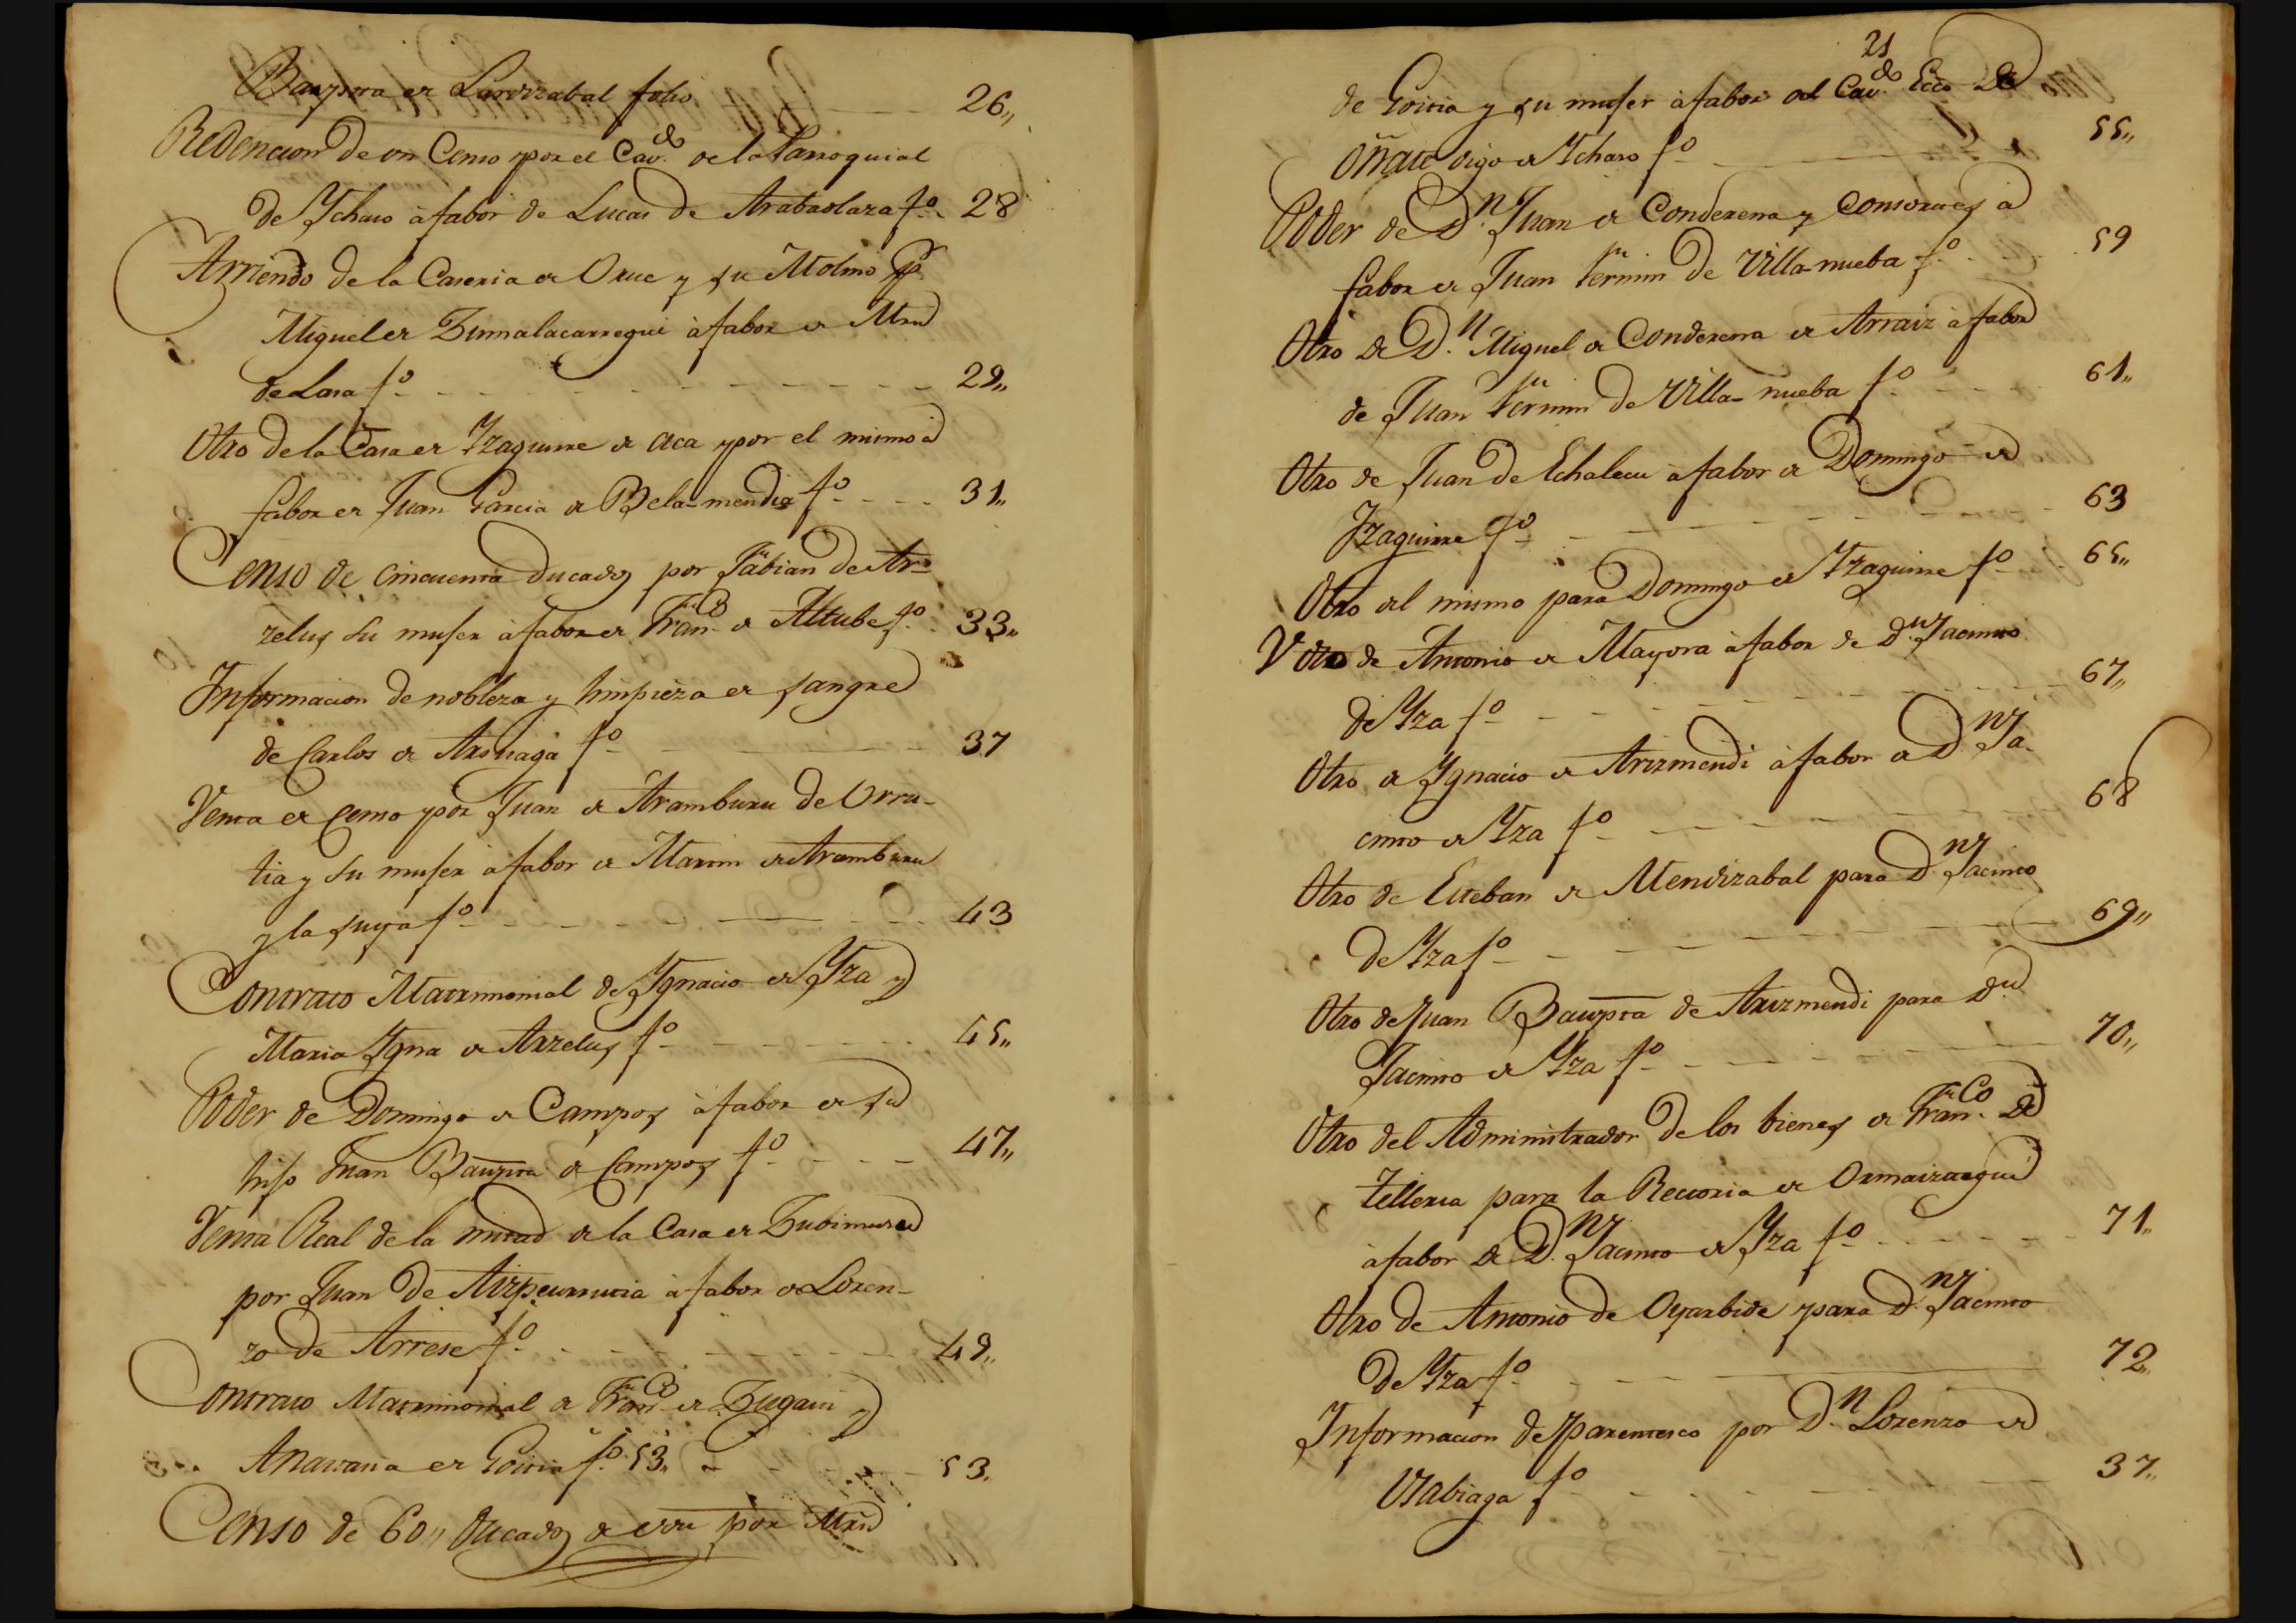 Baupta de Lardizabal folio 26,,
Redencion de un Censo por el Cav.do de la Parroquial
de Ychaso à fabor de Lucas de Arabaolaza fº 28
Arriendo de la Caseria de Oxue y su Molino
Miguel de Zumalacarregui à fabor de Mrn
de Lasa fº 29,,
Otro de la Casa de Yzaguirre de aca por el mismo à
fabor de Juan Garcia de Bela-mendia fº 31,,
Censo de cincuenta Ducados por Fabian de Ar-
zelus su muger à fabor de Fran.co de Altube fº 33,,
Informacion de nobleza y limpieza de sangre
de Carlos de Arsuaga fº 37
Venta de Censo por Juan de Aramburu de Urru-
tia y su muger à fabor de Martin de Aramburu
y la suya fº 43
Contrato Matrimonial de Ygnacio de Yza y
Maria Ygna de Arzelus fº 45,,
Poder de Domingo de Campos à fabor de su
hijo Juan Baupta de Campos fº 47,,
Venta Real de la mitad de la Casa de Zubimusu
por Juan de Aizpeurrutia à fabor de Loren-
zo de Arrese fº 49,,
Contrato Matrimonial de Fran.co de Zugasti y
Ana Maria de Goitia fº 53,, 53,
Censo de 60,, Ducados de por Mrn
21
de Goitia y su muger à fabor del Cav.do Ecco de
Oñate digo de Ychaso fº 55,,
Poder de D.n Juan de Conderena y Consortes à
fabor de Juan Fermin de Villa nueba fº 59
Otro de D.n Miguel de Conderena de Arraiz à fabor
de Juan Fermin de Villa-nueba fº 61,,
Otro de Juan de Echalecu à fabor de Domingo de
Yzaguirre fº 63
Otro del mismo para Domingo de Yzaguirre fº 65,,
Otro de Antonio de Mayora à fabor de D.n Jacinto
de Yza fº 67,,
Otro de Ygnacio de Arizmendi à fabor de D.n Ja-
cinto de Yza fº 68
Otro de Esteban de Mendizabal para D.n Jacinto
de Yza fº 69,,
Otro de Juan Baupta de Arizmendi para D.n
Jacinto de Yza fº 70,,
Otro del Administrador de los bienes de Fran.co de
Telleria para la Rectoria de Ormaiztegui
à fabor de D.n Jacinto de Yza fº 71,,
Otro de Antonio de Oyarbide para D.n Jacinto
de Yza fº 72,,
Informacion de parentesco por D.n Lorenzo de
Usabiaga fº 37,,